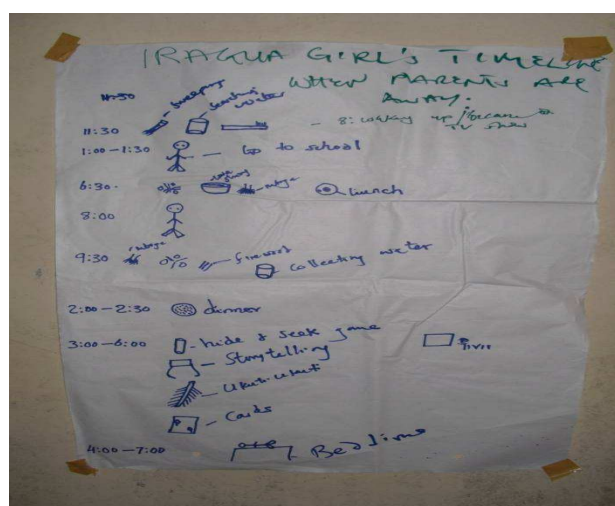 IRAGUA GIRL'S TIMELINE
WHEN PARENTS ARE
AWAY.
sweeping
water
11:30
8: waking up
TV show
1:00-1:30 Go to school
6:30. lunch
8:00
9:30 firewood
collecting water
2:00-2:30 dinner
3:00-6:00 hide & seek game
Storytelling
Ukuti-ukuti
Cards
4:00-7:00 Bedtime